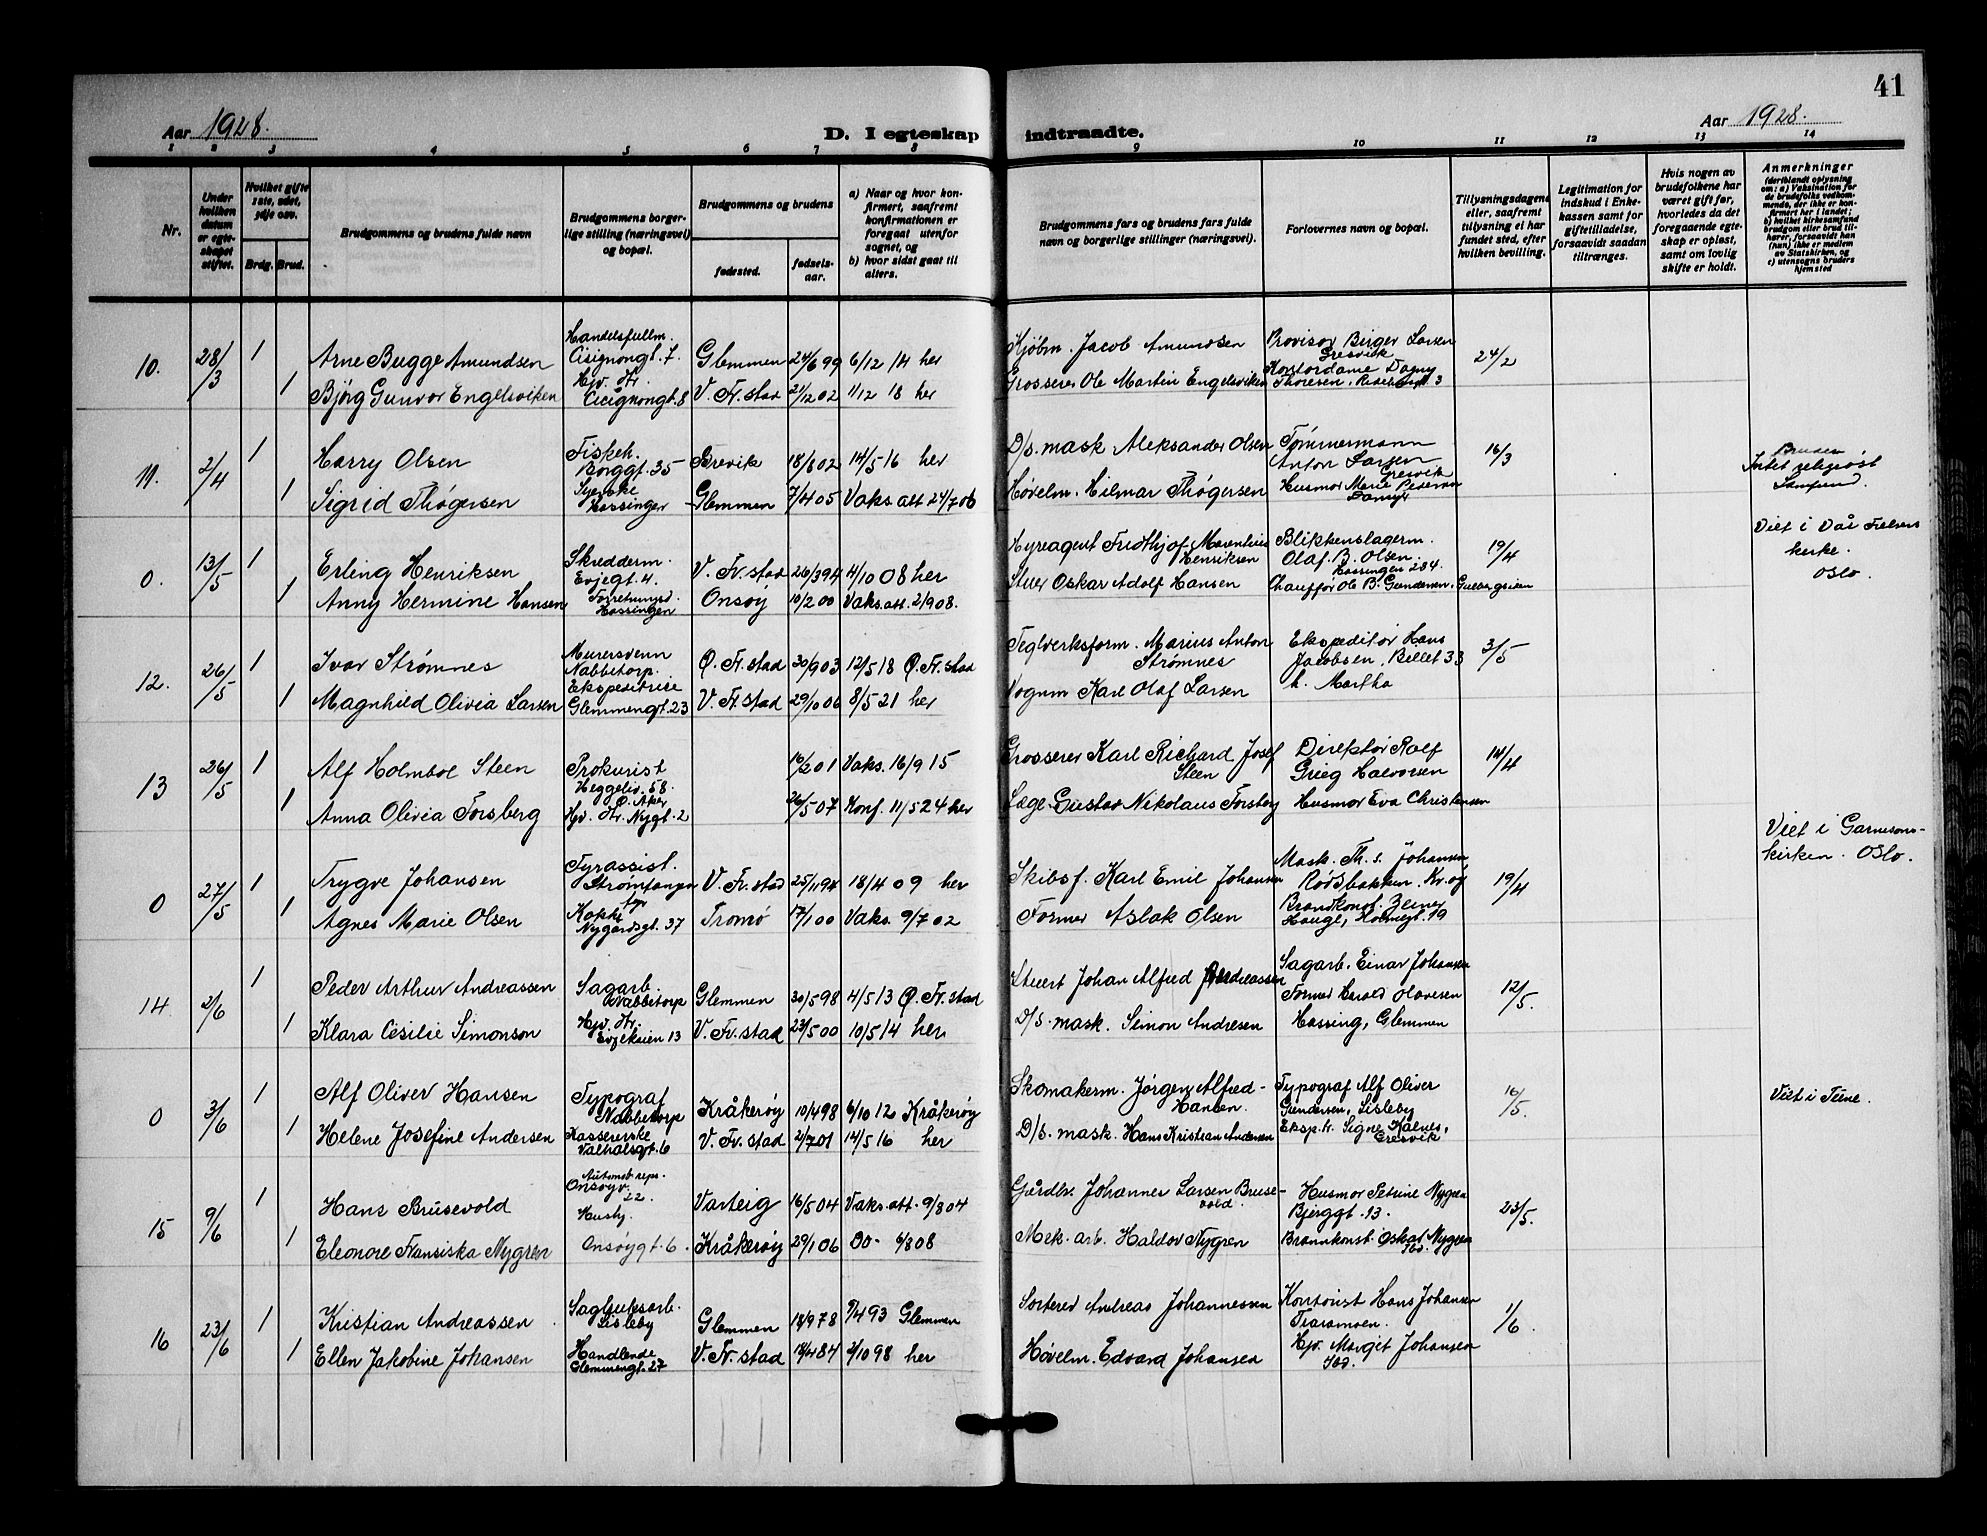 41
Aar 1928.
D. I egteskap indtraadte.
Aar 1928.
1 2 3 4 5 6 7 8 9 10 11 12 13 14
Nr.
Under hvilken datum er egteskapet stiftet.
Hvilket gifte 1ste, 2det, 3dje osv.
Brdg. Brud.
Brudgommens og brudens fulde navn
Brudgommens borgerlige stilling (næringsvei) og bopæl.
Brudgommens og brudens
fødested.
fødselsaar.
a) Naar og hvor konfirmert, saafremt konfirmationen er foregaat utenfor sognet, og
b) hvor sidst gaat til alters.
Brudgommens fars og brudens fars fulde navn og borgerlige stillinger (næringsvei).
Forlovernes navn og bopæl.
Tillysningsdagene eller, saafremt tillysning ei har fundet sted, efter hvilken bevilling.
Legitimation for indskud i Enkekassen samt for giftetilladelse, forsaavidt saadan tiltrænges.
Hvis nogen av brudefolkene har været gift før, hvorledes da det foregaaende egteskap er opløst, samt om lovlig skifte er holdt.
Anmerkninger
(deriblandt oplysning om: a) Vaksination for de brudefolks vedkommende, der ikke er konfirmert her i landet; b) hvilket kirkesamfund brudgom eller brud tilhører, forsaavidt han (hun) ikke er medlem av Statskirken, og c) utensogns bruders hjemsted
10. 28/3 1 Arne Bugge Amundsen Handelsfullm. Cisignongt. 7. Glemmen 24/6 99 6/12 14 her Kjøbm. Jacob Amundsen Provisor Birger Larsen Gresvik 24/2
1 Bjørg Gunvor Engelsviken Hjv. Dr. Cicignongt. 8 V. Fr.stad 21/12 02 1/12 18 her Grosserer Ole Martin Engelsviken Kontordame Dagny Thoresen.
11. 2/4 1 Harry Olsen Fiskeh. Borggt. 35 Brevik 18/8 02 14/5 16 her D/s. mask Aleksander Olsen Tømmermann Anton Larsen Gresvik 16/3 Bruden Intet religiøst Samfund.
1 Sigrid Thøgersen Syerske Hassingen Glemmen 7/4 05 Vaks. att 24/7 06 Høvelm. Hilmar Thøgersen Husmor Marie Pedersen
0. 13/5 1 Erling Henriksen Skredderm. Evjegt. 4. V. Fr.stad 26/3 94 4/10 08 her Hyreagent Fridthjof Marentius Henriksen Blikkenslagerm. Olaf. B. Olsen. Hassingen 284. 19/4 Viet i Vår Frelsers kirke. Oslo.
1 Anny Hermine Hansen Forretningsd. Hassingen Onsøy 10/2 00 Vaks. att. 2/9 08. Stuer Oskar Adolf Hansen Chauffør Ole B. Gundersen,
12. 26/5 1 Ivar Strømnes Murersvenn Nabbetorp. Ø. Fr.stad 30/9 03 12/5 18 Ø. Fr.stad Teglverksform. Marius Anton Strømnes Ekspeditør Hans Jacobsen, Billet 33 3/5
1 Magnhild Olivia Larsen Ekspeditrise Glemmengt. 23 V. Fr.stad 29/10 06 8/5 21 her Vognm Karl Olaf Larsen h. Martha
13 26/5 1 Alf Holmboe Steen Prokurist Heggeliv. 58. Ø. Aker 16/2 01 Vaks. 16/9 15 Grosserer Karl Richard Josef Steen Direktør Rolf Grieg Halvorsen 14/4
1 Anna Olivia Forsberg Hjv. Dr. Nygt. 2 26/5 07 Konf. 11/5 24 her Læge Gustav Nikolaus Forsberg Husmor Eva Christensen
0 27/5 1 Trygve Johansen Fyrassist. Strømtangen fyr V. Fr.stad 25/11 94 18/4 09 her Skibsf. Karl Emil Johansen Mask. Th. S. Johansen Rødsbakken. Kr.øy 19/4 Viet i Garnisonskirken. Oslo.
1 Agnes Marie Olsen Kokke Nygårdsgt. 37 Tromø 17/1 00 Vaks. 9/7 02 Former Aslak Olsen Brandkonst. Hauge, Holmegt. 19
14. 2/6 1 Peder Arthur Andreassen Sagarb. Nabbetorp Glemmen 30/5 98 4/5 13 Ø. Fr.stad Stuert Johan Alfred Andreassen Sagarb. Einar Johansen 12/5.
1 Klara Cesilie Simonson Hjv. Dr. Evjekleien 13 V. Fr.stad 23/5 00 10/5 14 her D/S. mask. Simon Andresen Former Harald Olavesen Hassing, Glemmen
0 3/6 1 Alf Oliver Hansen Typograf Nabbetorp Kråkerøy 10/4 98 6/10 12 Kråkerøy Skomakerm. Jørgen Alfred Hansen. Typograf Alf Oliver Gundersen, Lisleby 10/5. Viet i Tune.
1 Helene Josefine Andersen Kassererske Valhalsgt. 6 V. Fr.stad 2/7 01 14/5 16 her D/s. mask. Hans Kristian Andersen Eksp. tr. Signe Kalnes, Gresvik
15 9/6 1 Hans Brusevold Automat reps. Onsøyv. 22. Varteig 16/5 04 Vaks. att. 9/8 04 Gårdbr. Johannes Larsen Brusevold. Husmor Petrine Nygren Bjerggt. 13. 23/5.
1 Eleonore Fransiska Nygren Hushj. Onsøygt. 6. Kråkerøy 29/1 06 Do- 6/8 08 Mek. arb. Haldor Nygren Brannkonst. Oskar Nygren Ibd.
16 23/6 1 Kristian Andreassen Sagbruksarb. Lisleby Glemmen 18/9 78 9/4 93 Glemmen Sorterer Andreas Johannessen Kontorist Hans Johansen Traramoen. 1/6.
1 Ellen Jakobine Johansen Handlende Glemmengt. 27 V. Fr.stad 18/4 84 2/10 98 her Høvelm. Edvard Johansen Hjv. Margit Johansen Ibd.